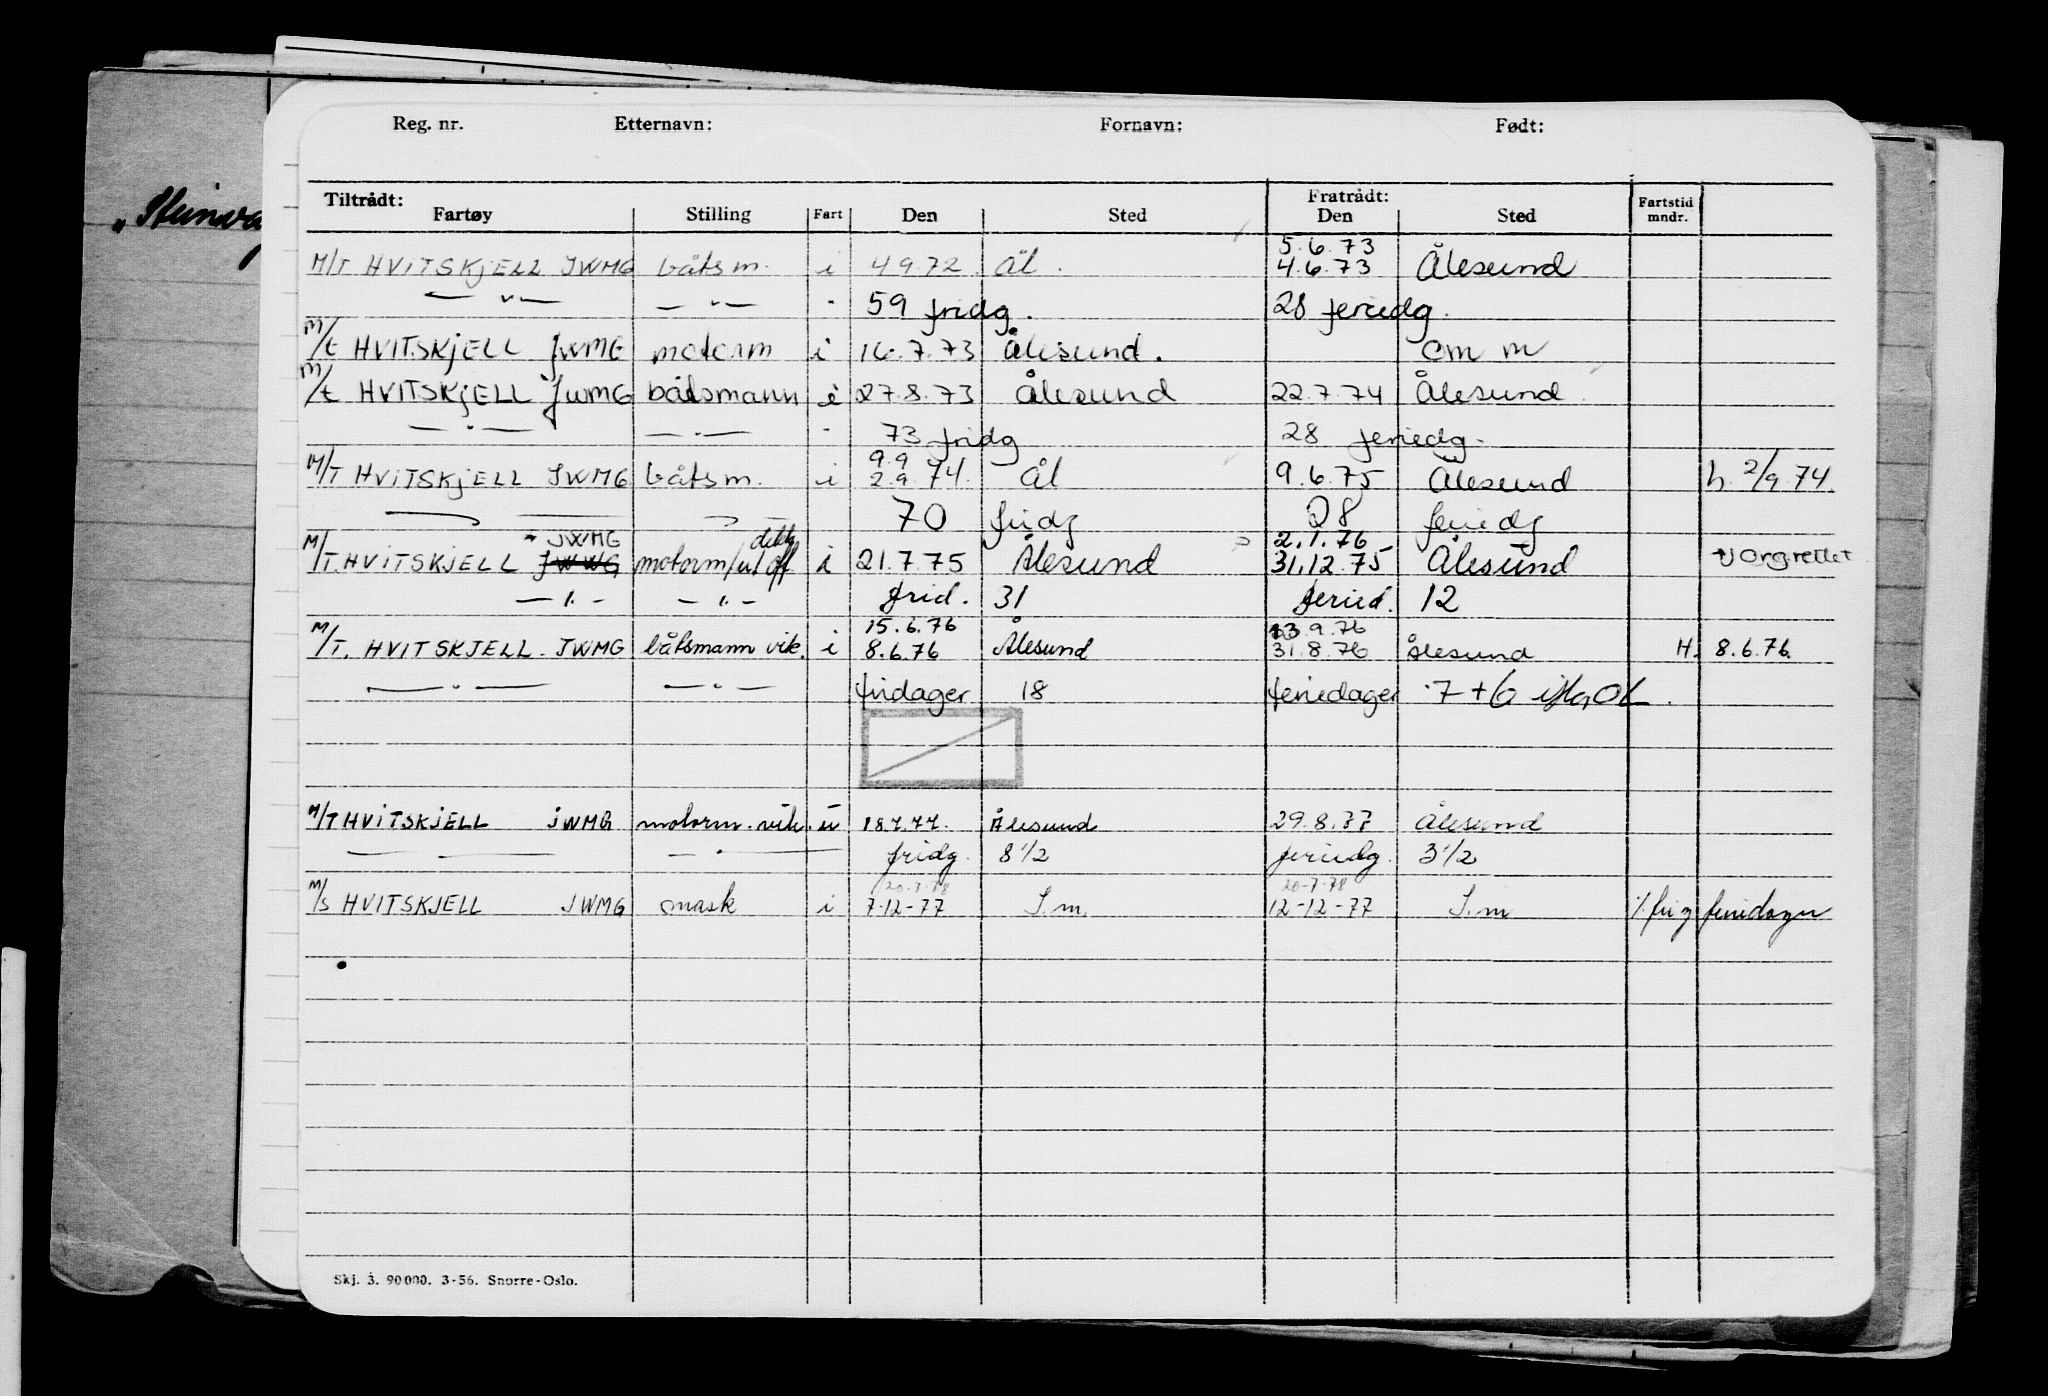 „Steinvag
Reg. nr. Etternavn: Fornavn: Født:
Tiltrådt: Fratrådt:
Fartøy Stilling Fart Den Sted Den Sted Fartstid mndr.
5.6.73
M/T HVITSKJELL JWMG båtsm. i 4 9.72. Ål. 4.6.73 Ålesund
— " — — " — " 59 fridg. 28 feriedg.
M/t HVITSKJELL JWMG motorm i 16.7.73 Ålesund. om m
M/t HVITSKJELL JWMG båtsmann i 27.8.73 Ålesund 22.7.74 Ålesund
— " — — " — " 73 fridg 28 feriedg.
9.9
M/T HVITSKJELL JWMG båtsm. i 2.9.74. Ål 9.6.75 Ålesund h. 2/9 74.
70 fridg 28 feriedg
JWMG 2.1.76
M/T. HVITSKJELL JWWG motorm/ i 21.7.75 Ålesund 31.12.75 Ålesund
— " — — " — frid. 31 feried. 12
15.6.76 13.9.76
M/T. HVITSKJELL. JWMG båtsmann vik. i 8.6.76 Ålesund 31.8.76 Ålesund H. 8.6.76.
— " — — " — fridager 18 feriedager 7 + 6
M/T HVITSKJELL JWMG motorm. vik. i 18.7.77. Ålesund 29.8.77 Ålesund
— " — fridg. 8 1/2 feriedg. 3 1/2
20.7.78 20-7-78
M/S HVITSKJELL JWMG mask i 7-12-77 I.m. 12-12-77 I.m ./. fri og feriedager
Skj. 3. 90000. 3-56. Snorre-Oslo.